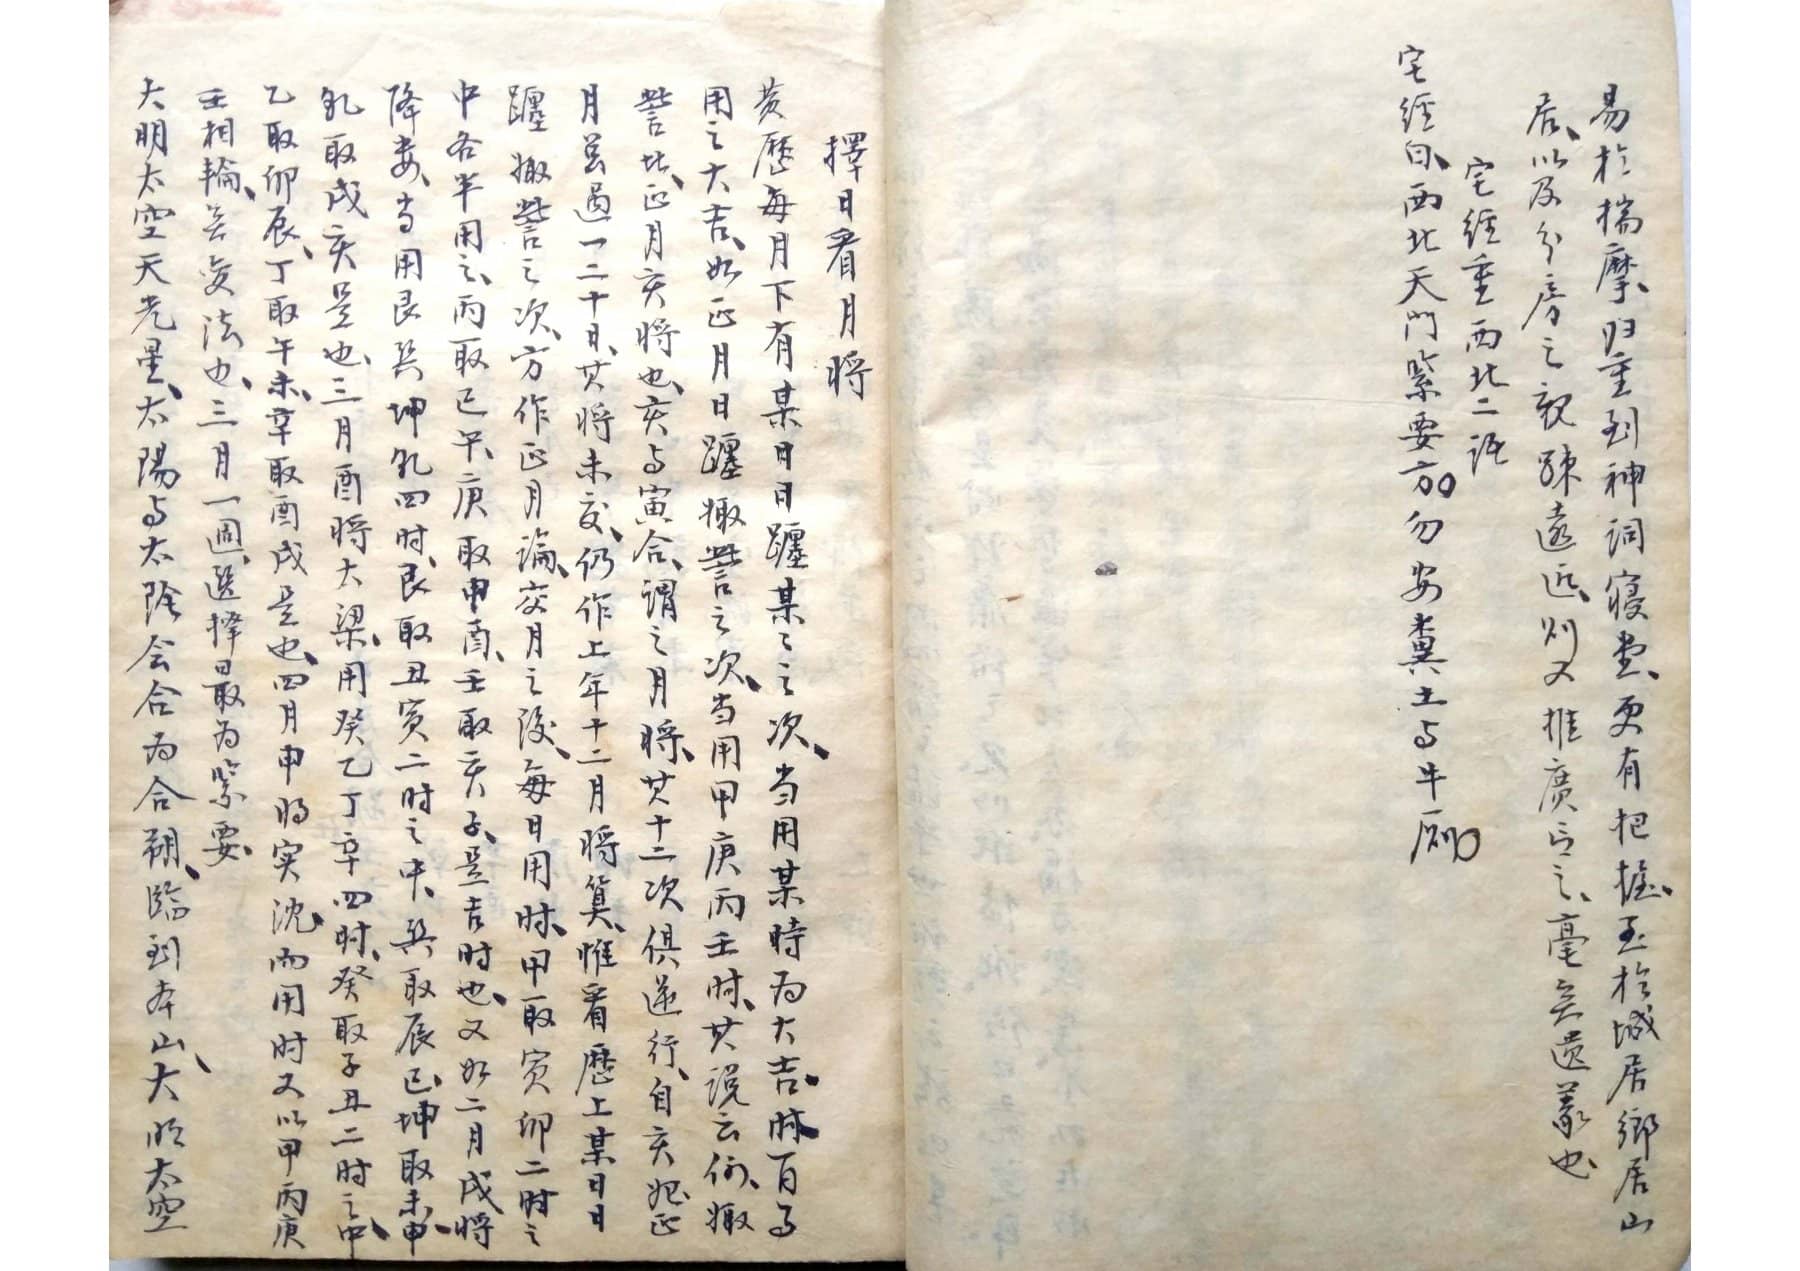 易於揣摩、归重到神祠寝堂、更有把握、至於城居鄉居山
居、以及分房之親疎遠近、则又推廣言之、毫无遗義也
宅經重西北二誆
宅經曰、西北天門緊要方。勿安糞土与牛厕。
擇日看月將
黄歷每月下有某日日躔某之之次、当用某時为大吉、时百事
用之大吉、如正月日躔娵訾之次、当用甲庚丙壬时、其说云何、娵
訾北、正月亥將也、亥与寅合、谓之月將、其十二次俱逆行、自亥起正
月若過一二十日、其將未交、仍作上年十二月將算、惟看歷上某日日
躔娵訾之次、方作正月論、交月之後、每日用时、甲取寅卯二时之
中各半用之、丙取巳午、庚取申酉、壬取亥子、是吉时也、又如二月戌將
降娄、当用艮巽坤乾四时、艮取丑寅二时之中、巽取辰巳、坤取未申、
乾取戌亥是也、三月酉將大梁、用癸乙丁辛四时、癸取子丑二时之中、
乙取卯辰、丁取午未、辛取酉戌是也、四月申將实沈、而用时又以甲丙庚
壬相輪、无变法也、三月一週、选擇最为緊要、
大明太空天光星、太陽与太陰会合为合朔、臨到本山、大明太空